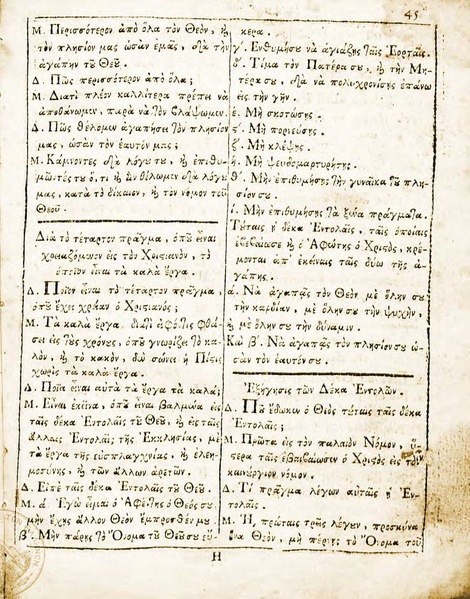 45
Μ. Περισσότερον ἀπὸ ὅλα τὸν Θεὸν, ϗ
τὸν πλησίον μας ὡσὰν ἐμᾶς, διὰ τὴν
ἀγάπην τοῦ Θεοῦ.
Δ. Πῶς περισσότερον ἀπὸ ὅλα;
Μ. Διατὶ πλέον καλλίτερα πρέπει νὰ
ἀποθάνωμεν, παρὰ νὰ τὸν βλάψωμεν.
Δ. Πῶς θέλομεν ἀγαπήσει τὸν πλησίον
μας, ὡσὰν τὸν ἑαυτόν μας;
Μ. Κάμνοντες διὰ λόγου του, ϗ ἐπιθυ-
μῶντές του ὅ,τι ϗ ἂν θέλωμεν διὰ λόγου
μας, κατὰ τὸ δίκαιον, ϗ τὸν νόμον τοῦ
Θεοῦ.
Διὰ τὸ τέταρτον πρᾶγμα, ὁποῦ εἶναι
χρειαζόμενον εἰς τὸν Χριστιανὸν, τὸ
ὁποῖον εἶναι τὰ καλὰ ἔργα.
Δ. Ποῖον εἶναι τὸ τέταρτον πρᾶγμα,
ὁποῦ ἔχει χρείαν ὁ Χριστιανός;
Μ. Τὰ καλὰ ἔργα. διατὶ ἀφ᾽ ὅτις φθά-
σει εἰς τοὺς χρόνους, ὁποῦ γνωρίζει τὸ κα-
λὸν, ϗ τὸ κακὸν, δὲν σώνει ἡ Πίστις
χωρὶς τὰ καλὰ ἔργα.
Δ. Ποῖα εἶναι αὐτὰ τὰ ἔργα τὰ καλά;
Μ. Εἶναι ἐκεῖνα, ὁποῦ εἶναι βαλμένα εἰς
ταῖς δέκα Ἐντολαῖς τοῦ Θεοῦ, ϗ εἰς ταῖς
ἄλλαις Ἐντολαῖς τῆς Ἐκκλησίας, μὲ
τὰ ἔργα τῆς εὐσπλαγχνίας, ϗ ἐλεη-
μοσύνης, ϗ τῶν ἄλλων ἀρετῶν.
Δ. Εἰπὲ ταῖς δέκα Ἐντολαῖς τοῦ Θεοῦ.
Μ. ά. Ἐγὼ εἶμαι ὁ Ἀφέντης ὁ Θεός σου
μὴν ἔχῃς ἄλλον Θεὸν ἔμπροσθέν μου.
β΄. Μὴν πάρῃς τὸ Ὄνομα τοῦ Θεοῦ σου εὔ-
κερα.
γ΄. Ἐνθυμήσου νὰ ἁγιάζῃς ταῖς Ἑορταῖς.
δ΄. Τίμα τὸν Πατέρα σου, ϗ τὴν Μη-
τέρα σου, διὰ νὰ πολυχρονίσῃς ἐπάνω
εἰς τὴν γῆν.
έ. Μὴ σκοτώσῃς.
ϛ΄. Μὴ πορνεύσῃς.
ζ΄. Μὴ κλέψῃς.
ή. Μὴ ψευδομαρτυρήσῃς.
θ΄. Μὴν ἐπιθυμήσῃς τὴν γυναῖκα τοῦ πλη-
σίον σου.
ί. Μὴν ἐπιθυμήσῃς τὰ ξένα πράγματα.
Τούταις ἡ δέκα Ἐντολαῖς, ταῖς ὁποίαις
ἐβεβαίωσε ϗ ὁ Ἀφέντης ὁ Χριστὸς, κρέ-
μονται ἀπ᾽ ἐκείναις ταῖς δύω τῆς ἀ-
γάπης.
ά. Νὰ ἀγαπᾷς τὸν Θεὸν μὲ ὅλην σου
τὴν καρδίαν, μὲ ὅλην σου τὴν ψυχὴν,
ϗ μὲ ὅλην σου τὴν δύναμιν.
Καὶ β΄. Νὰ ἀγαπᾷς τὸν πλησίον σου ὡ-
σὰν τὸν ἑαυτόν σου.
Ἐξήγησις τῶν Δέκα Ἐντολῶν.
Δ. Ποῦ ἔδωκεν ὁ Θεὸς τούταις ταῖς δέκα
Ἐντολαῖς;
Μ. Πρῶτα εἰς τὸν παλαιὸν Νόμον, ὕ-
στερα ταῖς ἐβεβαίωσεν ὁ Χριστὸς εἰς τὸν
καινούργιον νόμον.
Δ. Τί πρᾶγμα λέγουν αὐταῖς ἡ Ἐν-
τολαῖς.
Μ. Ἡ πρώταις τρεῖς λέγουν, προσκύνα
ἕνα Θεὸν, μὴ πέρνῃς τὸ Ὄνομα τοῦ
Η